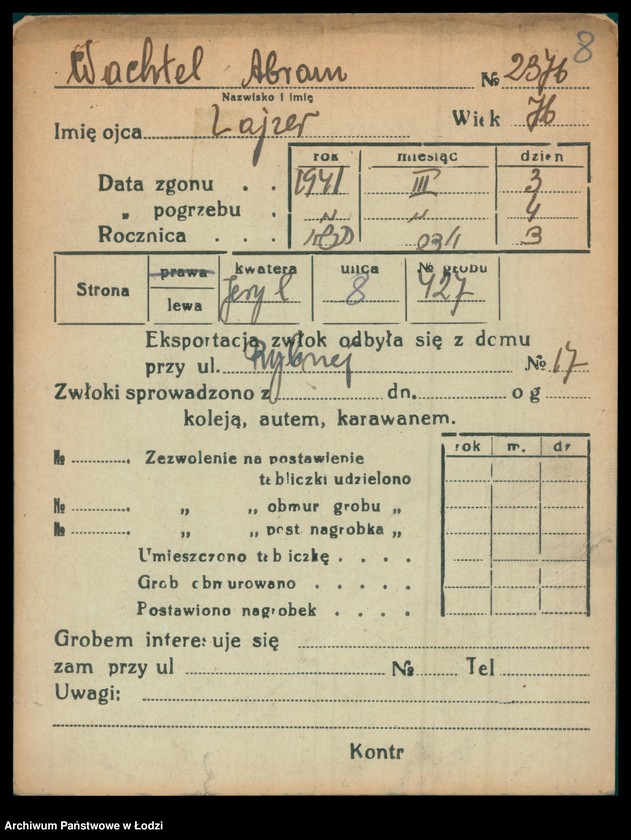 8
Wachtel Abram № 2376
Nazwisko i imię
Imię ojca Lajzer Wiek 76
rok miesiąc dzień
Data zgonu . . 1941 III 3
„ pogrzebu . „ „ 4
Rocznica . . . 3
Strona prawa lewa kwatera ulica 8 № grobu 427
Eksportacja zwłok odbyła się z domu
przy ul. Rybnej № 17
Zwłoki sprowadzono z dn. o g
koleją, autem, karawanem.
rok m. dz
№ Zezwolenie na postawienie
tabliczki udzielono
№ „ „ obmur grobu „
№ „ „ post. nagrobka „
Umieszczono tabliczkę . . . .
Grob obmurowano . . . . .
Postawiono nagrobek . . . .
Grobem interesuje się
zam przy ul № Tel
Uwagi:
Kontr
Archiwum Państwowe w Łodzi